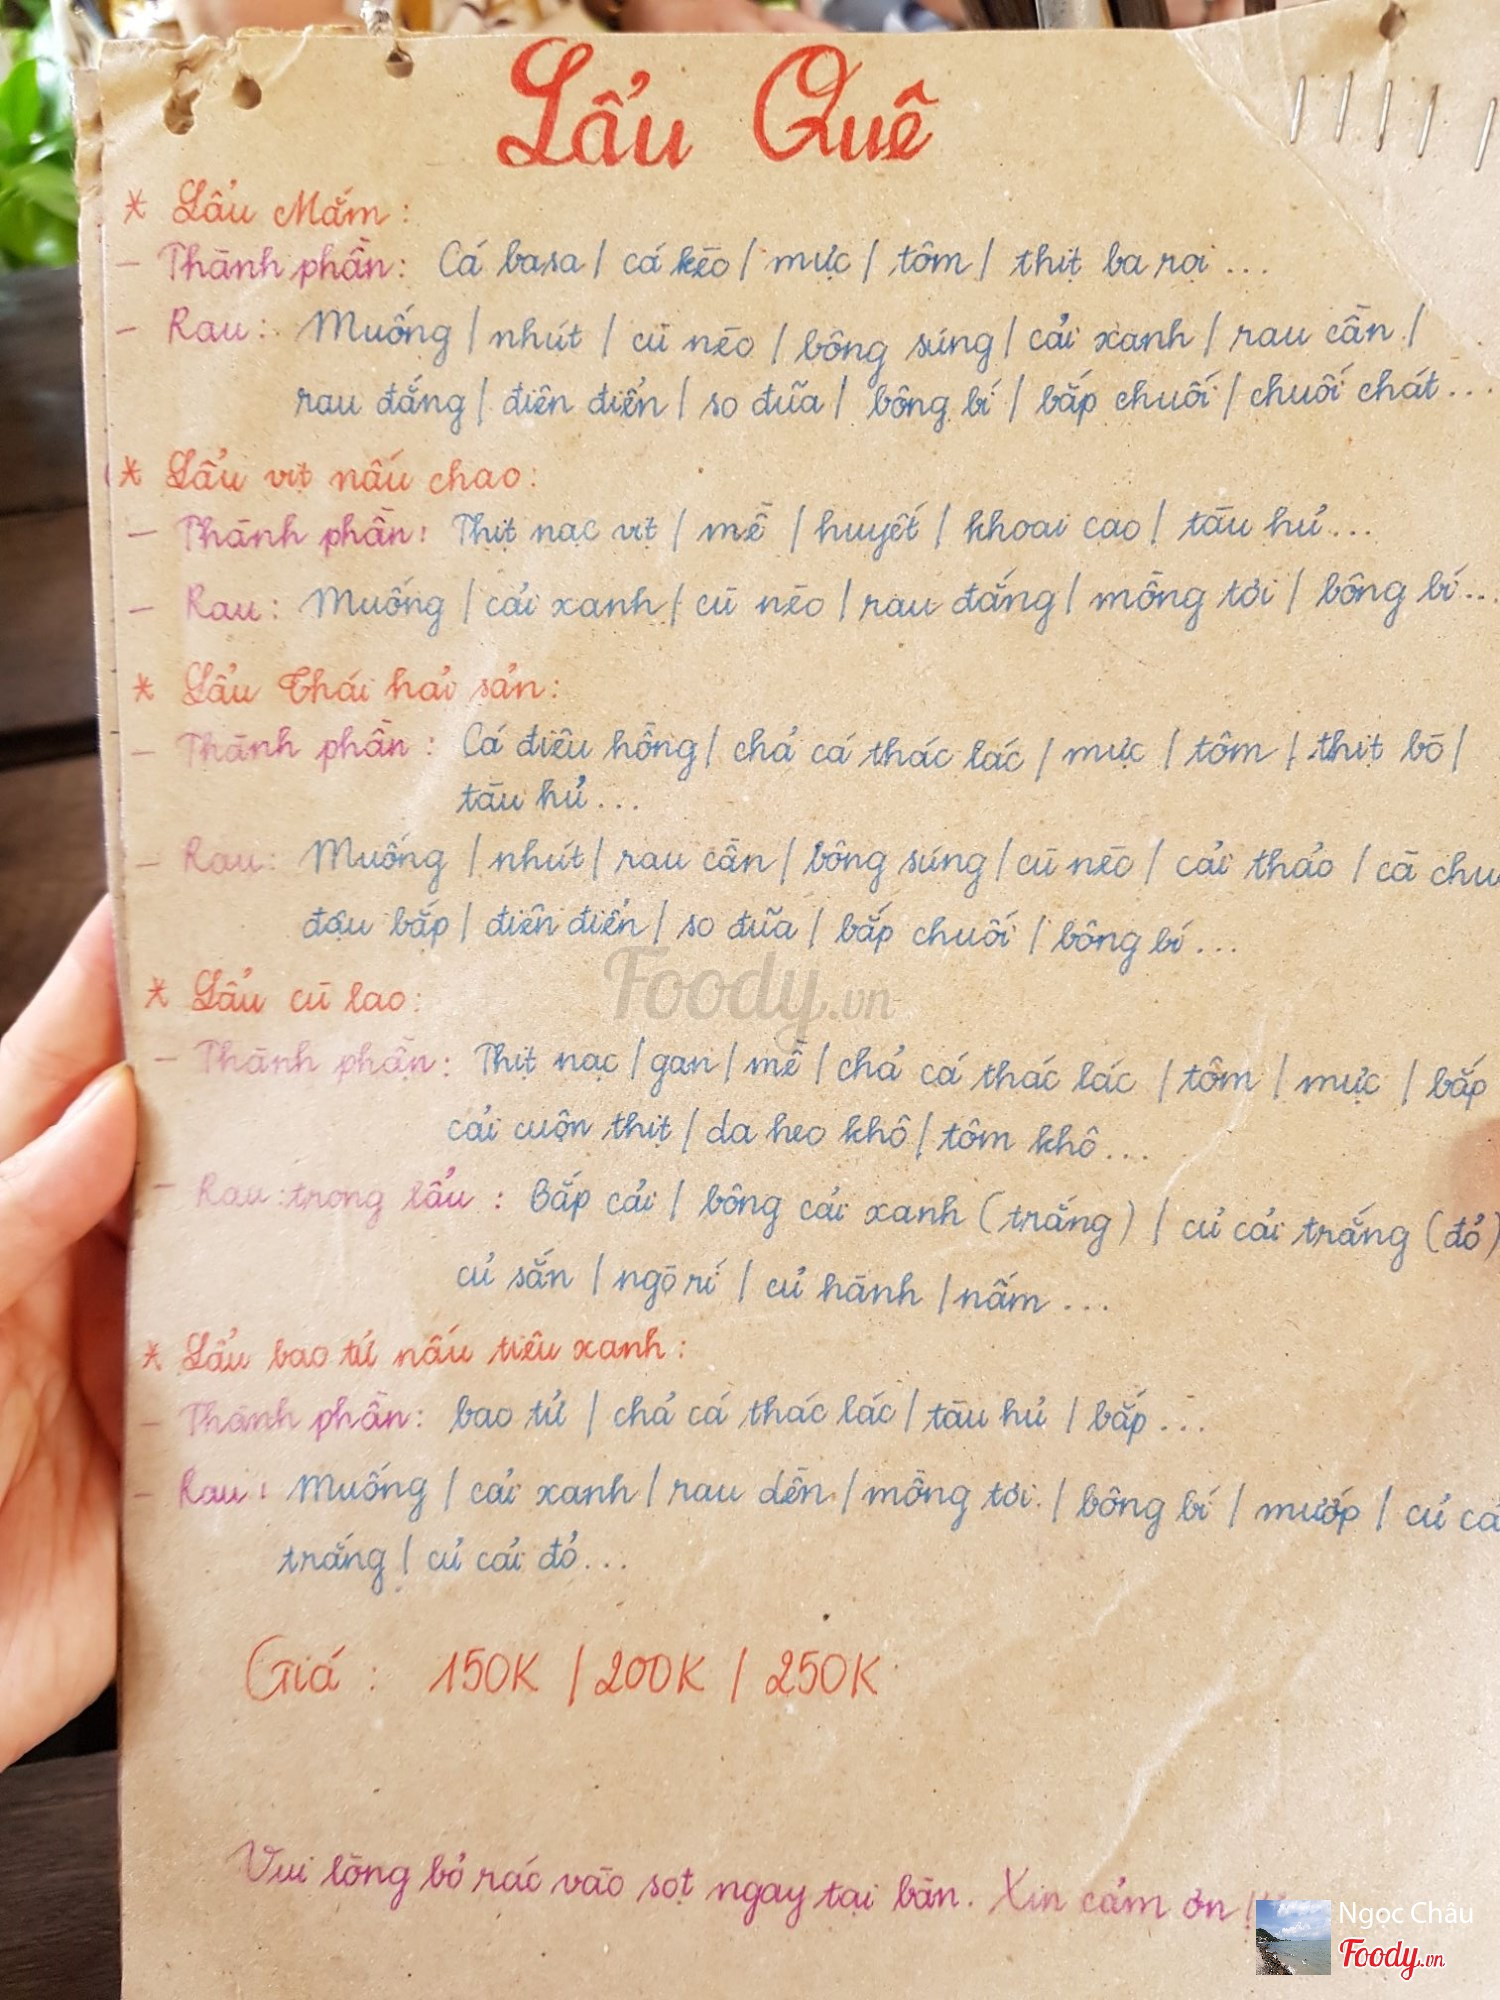 Lẩu Quê
* Lẩu Mắm:
- Thành phần: Cá basa / cá kèo / mực / tôm / thịt ba rọi ...
- Rau: Muống / nhút / cù nèo / bông súng / cải xanh / rau cần /
rau đắng / điên điển / so đũa / bông bí / bắp chuối / chuối chát ...
* Lẩu vịt nấu chao:
- Thành phần: Thịt nạc vịt / mề / huyết / khoai cao / tàu hủ ...
- Rau: Muống / cải xanh / cù nèo / rau đắng / mồng tơi / bông bí ...
* Lẩu Thái hải sản:
- Thành phần: Cá điêu hồng / chả cá thác lác / mực / tôm / thịt bò /
tàu hủ ...
- Rau: Muống / nhút / rau cần / bông súng / cù nèo / cải thảo / cà chu
đậu bắp / điên điển / so đũa / bắp chuối / bông bí ...
* Lẩu cù lao:
- Thành phần: Thịt nạc / gan / mề / chả cá thác lác / tôm / mực / bắp
cải cuộn thịt / da heo khô / tôm khô ...
- Rau: trong lẩu: Bắp cải / bông cải xanh (trắng) / củ cải trắng (đỏ)
củ sắn / ngò rí / củ hành / nấm ...
* Lẩu bao tử nấu tiêu xanh:
- Thành phần: bao tử / chả cá thác lác / tàu hủ / bắp ...
- Rau: Muống / cải xanh / rau dền / mồng tơi / bông bí / mướp / củ cả
trắng / củ cải đỏ ...
Giá: 150K / 200K / 250K
Vui lòng bỏ rác vào sọt ngay tại bàn. Xin cảm ơn !!!
Foody.vn
Ngọc Châu
Foody.vn